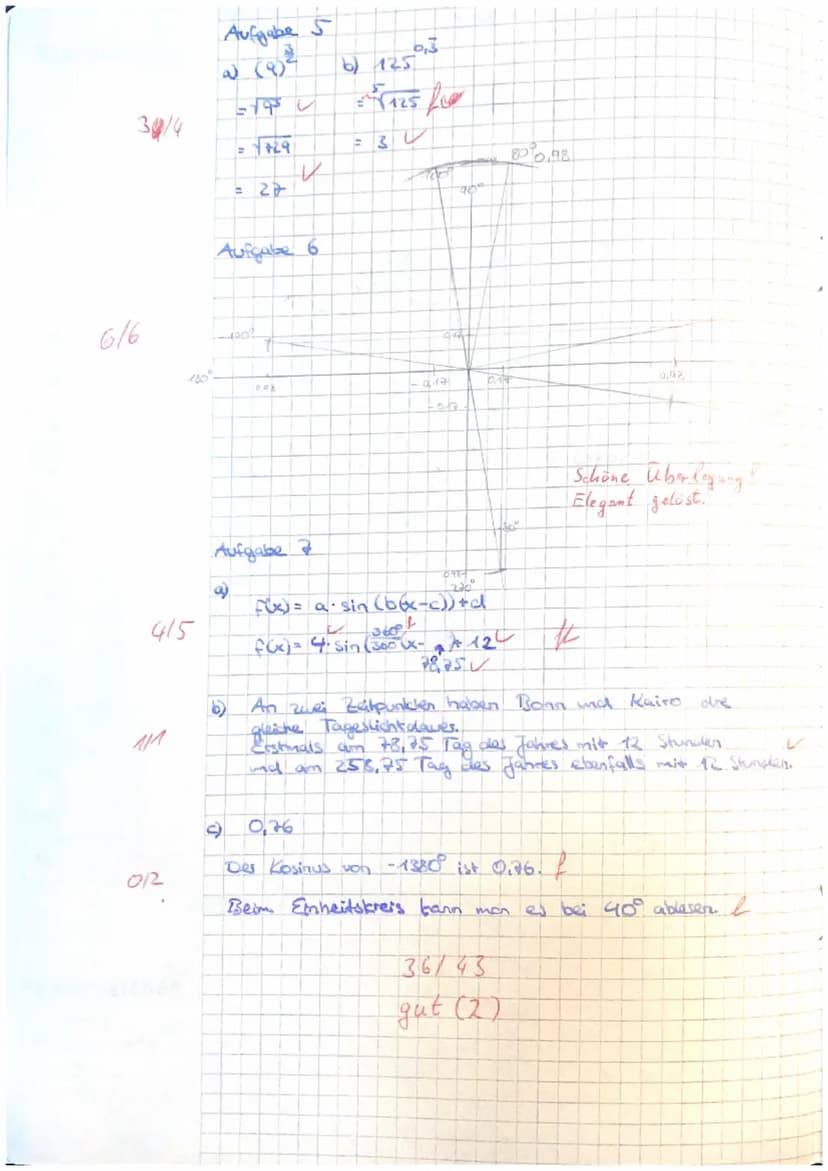 Aufgabe 5
a) (9)^3/2 b) 125^0,3
= √9³ ✓ = ⁵√125 f
3/4
= √729 = 3 ✓
= 27 ✓
80° 0,98
100°
90°
Aufgabe 6
6/6
0,17
180°
-0,17 0,17 0,98
-0,17
Schöne Überlegung!
Elegant gelöst.
Aufgabe 7
270°
a)
f(x) = a · sin (b(x-c))+d
4/5
f(x) = 4 · sin (360°/360 (x- ) + 12 ✓
78,75 ✓
b) An zwei Zeitpunkten haben Bonn und Kairo die
gleiche Tageslichtdauer.
1/1
Erstmals am 78,75 Tag des Jahres mit 12 Stunden ✓
und am 258,75 Tag des Jahres ebenfalls mit 12 Stunden.
c) 0,76
Der Kosinus von -1380° ist 0,76. f
0/2
Beim Einheitskreis kann man es bei 40° ablesen. f
36/43
gut (2)